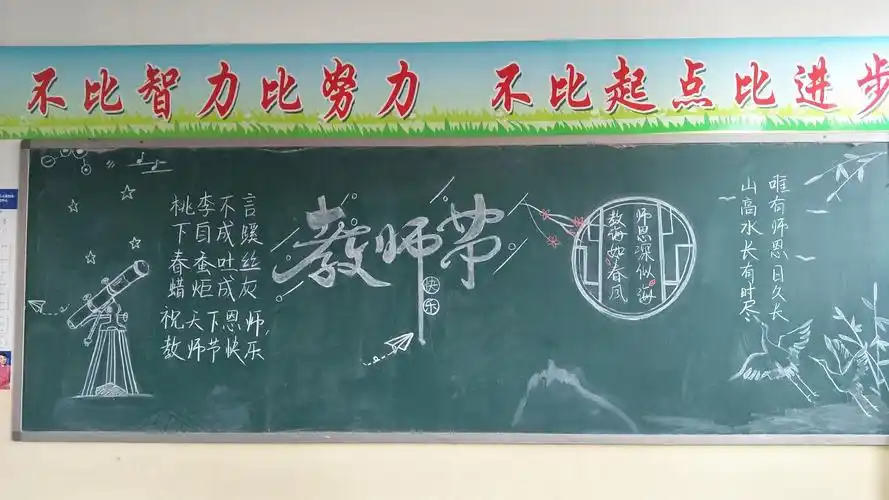 不比智力比努力 不比起点比进步
桃李不言
下自成蹊
春蚕吐丝
蜡炬成灰
祝天下恩师,
教师节快乐
教师节
快乐
师恩深似海
教诲如春风
山高水长有时尽
唯有师恩日久长